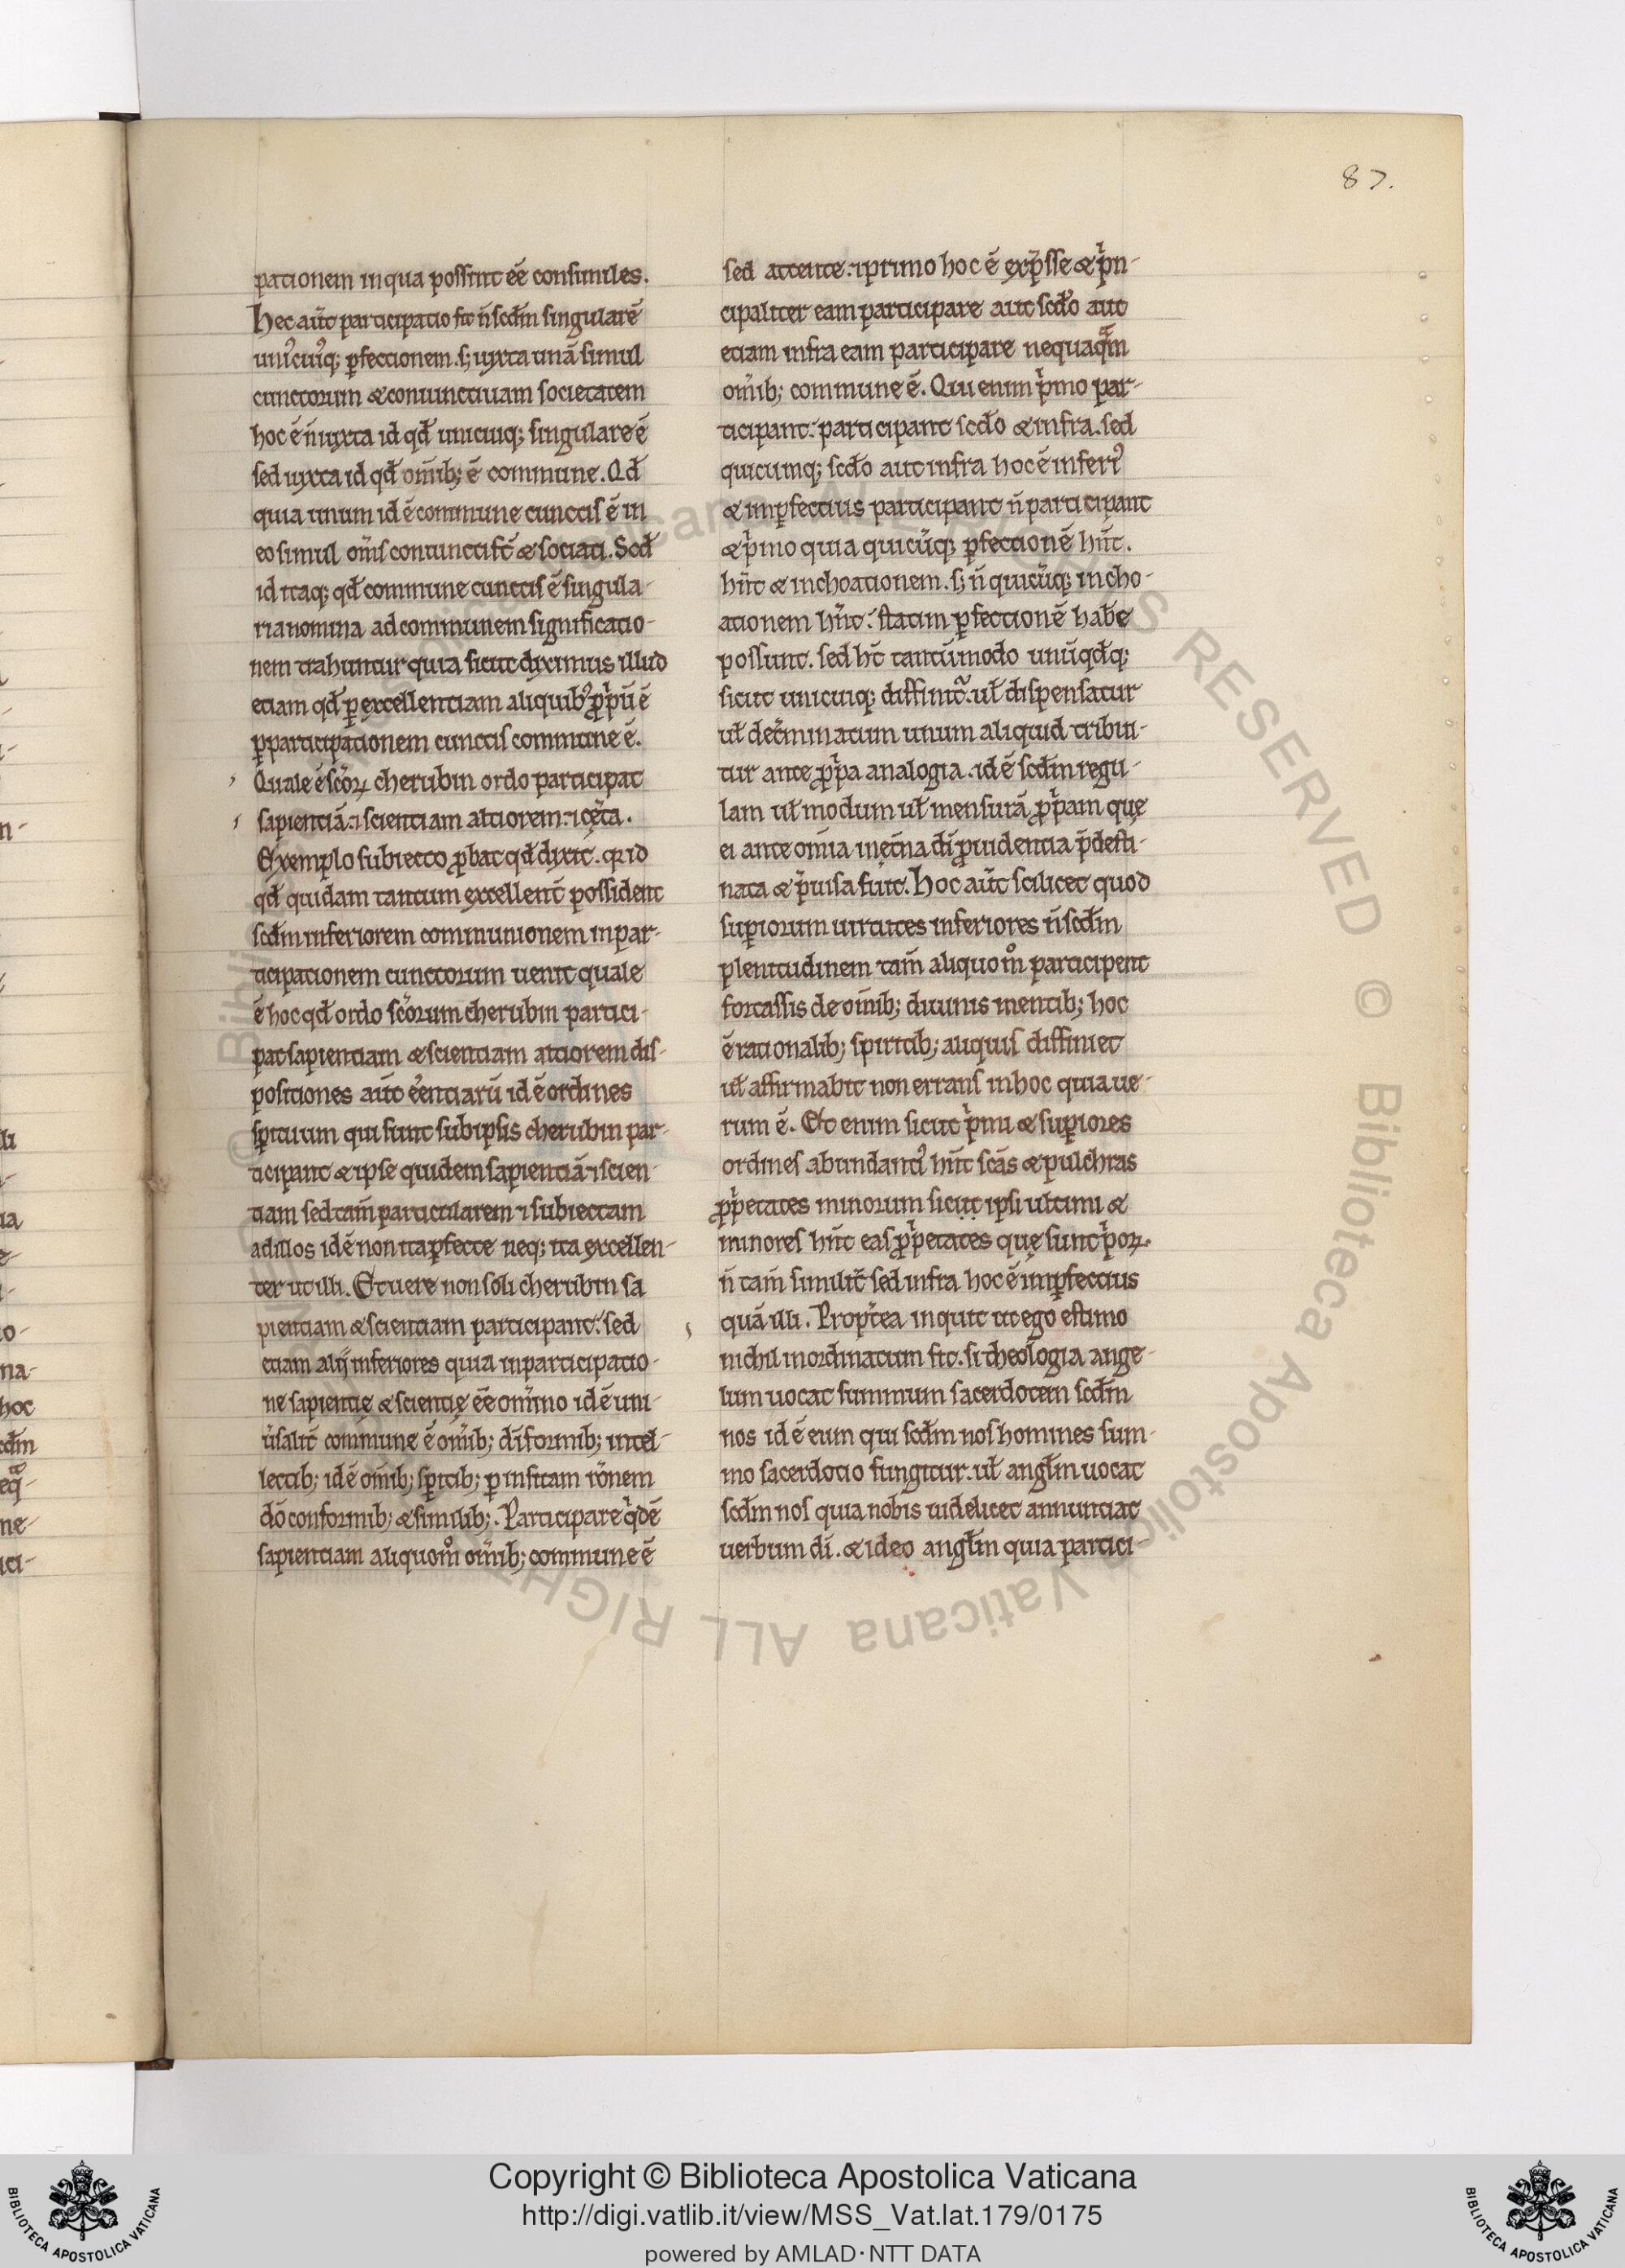 87.
pationem in qua possint eē consimiles.
Hec aūt participatio fit ñ scd̄m singularē
uniꝰcuiꝰq; ꝑfectionem. s; iuxta unā simul
cunctorum & coniunctiuam societatem
hoc ē ñ iuxta id qđ unicuiq; singulare ē
sed iuxta id qđ om̄ib; ē commune. Qđ
quia unum id ē commune cunctis ē in
eo simul om̄s coniuncti st̄ & sociati. Scđ
id itaq; qđ commune cunctis ē singula-
ria nomina ad communem significatio-
nem trahuntur quia sicut diximus illud
etiam qđ ꝑ excellentiam aliquibꝰ ꝓpͥū ē
ꝑ participationem cunctis commune ē.
Quale ē sc̄oꝝ cherubin ordo participat
sapientiā. ⁊ scientiam altiorem. ⁊ cet̄a.
Exemplo subiecto ꝓbat qđ dixit. qꝛ id
qđ quidam tantum excellent̄ possident
scd̄m inferiorem communionem in par-
ticipationem cunctorum uenit quale
ē hoc qđ ordo sc̄orum cherubin partici-
pat sapientiam & scientiam altiorem dis-
positiones aūt eēntiarū id ē ordines
sp̄ituum qui sunt sub ipsis cherubin par-
ticipant & ipse quidem sapientiā ⁊ scien-
tiam sed tam̄ particularem ⁊ subiectam
ad illos id ē non ita ꝑfecte neq; ita excellen-
ter ut illi. Et uere non soli cherubin sa
pientiam & scientiam participant. sed
etiam alij inferiores quia in participatio-
ne sapientię & scientię eē om̄ino id ē uni-
ūsalit̄ commune ē om̄ib; dīformib; intel-
lectib; id ē om̄ib; sp̄itib; ꝑ insitam rōnem
dō conformib; & similib;. Participare qͥdē
sapientiam aliquom̊ om̄ib; commune ē
sed attente. ⁊ primo hoc ē exp̄sse & pͥn-
cipaliter eam participare aut scd̄o aut
etiam infra eam participare nequaqᷓm
om̄ib; commune ē. Qui enim pͥmo par-
ticipant. participant scd̄o & infra. sed
quicumq; scd̄o aut infra hoc ē inferiꝰ
& imꝑfectius participant ñ participant
& pͥmo quia quicūq; ꝑfectionē hn̄t.
hn̄t & inchoationem. s; ñ quicūq; incho-
ationem hn̄t. statim ꝑfectionē habe
possunt. sed hc̄ tantūmodo unūqđq;
sicut unicuiq; diffinitᷓ. uł dispensatur
uł det̄minatum unum aliquid tribui-
tur ante ꝓpͥa analogia. id ē scd̄m regu-
lam uł modum uł mensurā ꝓpͥam quę
ei ante om̄ia in et̄na dī ꝓuidentia p̄desti-
nata & p̄uisa fuit. Hoc aūt scilicet quod
suꝑiorum uirtutes inferiores ñ scd̄m
plenitudinem tam̄ aliquom̊ participent
fortassis de om̄ib; diuinis mentib; hoc
ē rationalib; spiritib; aliquis diffiniet
uł affirmabit non errans in hoc quia ue-
rum ē. Et enim sicut pͥmi & suꝑiores
ordines abundantꝰ hn̄t scās & pulchras
ꝓpͥetates minorum sicut ipsi ultimi &
minores hn̄t eas ꝓpͥetates quę sunt pͥoꝝ.
ñ tam̄ similit̄ sed infra hoc ē imꝑfectius
quā illi. Propt̄ea inquit ut ego estimo
nichil inordinatum fit. si theologia ange-
lum uocat summum sacerdotem scd̄m
nos id ē eum qui scd̄m nos homines sum-
mo sacerdotio fungitur. uł angłm uocat
scd̄m nos quia nobis uidelicet annuntiat
uerbum dī. & ideo angłm quia partici-
Copyright © Biblioteca Apostolica Vaticana
http://digi.vatlib.it/view/MSS_Vat.lat.179/0175
powered by AMLAD·NTT DATA
BIBLIOTECA APOSTOLICA VATICANA
BIBLIOTECA APOSTOLICA VATICANA
© Biblioteca Apostolica Vaticana ALL RIGHTS RESERVED © Biblioteca Apostolica Vaticana ALL RIGHTS RESERVED